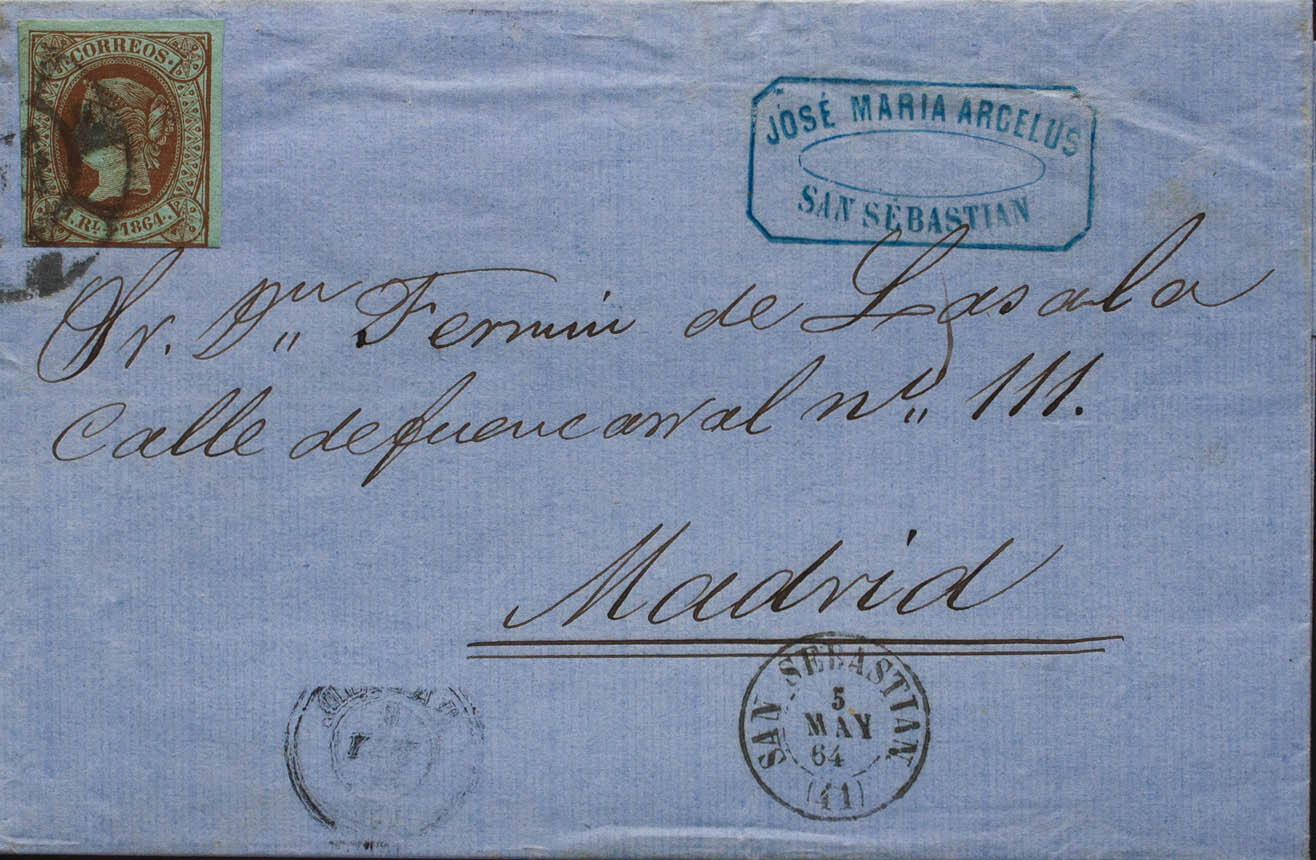 CORREOS
1 Rl. 1864.
JOSÉ MARIA ARCELUS
SAN SÉBASTIAN
Sr. Dn Fermin de Lasala
Calle de fuencarral no 111.
Madrid
SAN SEBASTIAN
5
MAY
64
(41)